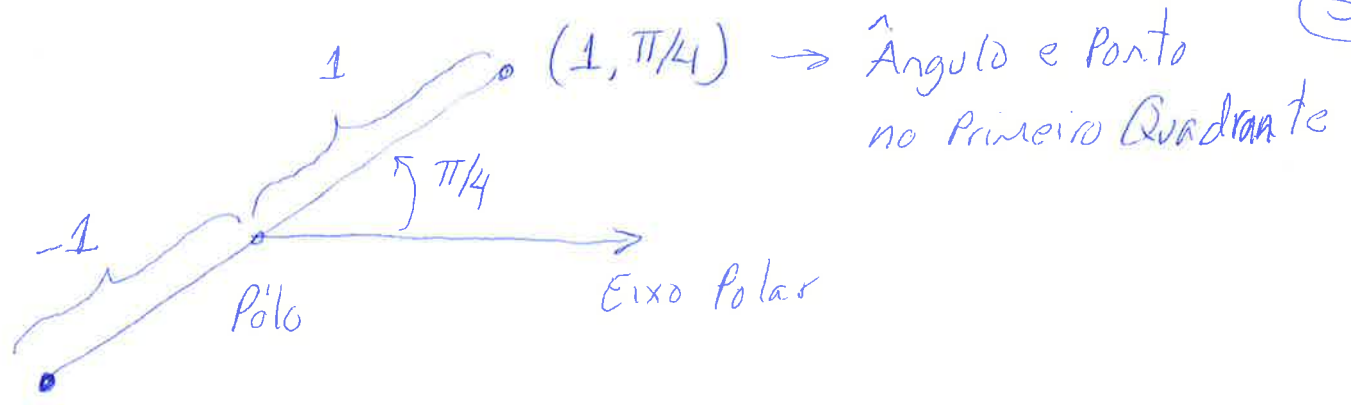 1 (1, π/4) → Ângulo e Ponto
no Primeiro Quadrante
π/4
-1
Pólo
Eixo Polar